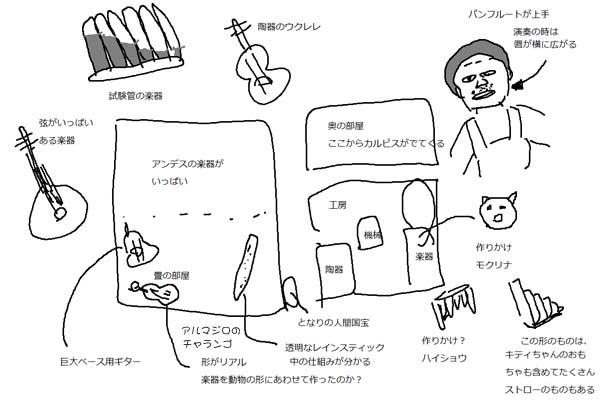 パンフルートが上手
演奏の時は
唇が横に広がる
陶器のウクレレ
試験管の楽器
弦がいっぱい
ある楽器
アンデスの楽器が
いっぱい
奥の部屋
ここからカルピスがでてくる
工房
機械
陶器
楽器
作りかけ
モクリナ
畳の部屋
となりの人間国宝
巨大ベース用ギター
アルマジロの
チャランゴ
形がリアル
楽器を動物の形にあわせて作ったのか？
透明なレインスティック
中の仕組みが分かる
作りかけ？
ハイショウ
この形のものは、
キティちゃんのおも
ちゃも含めてたくさん
ストローのものもある